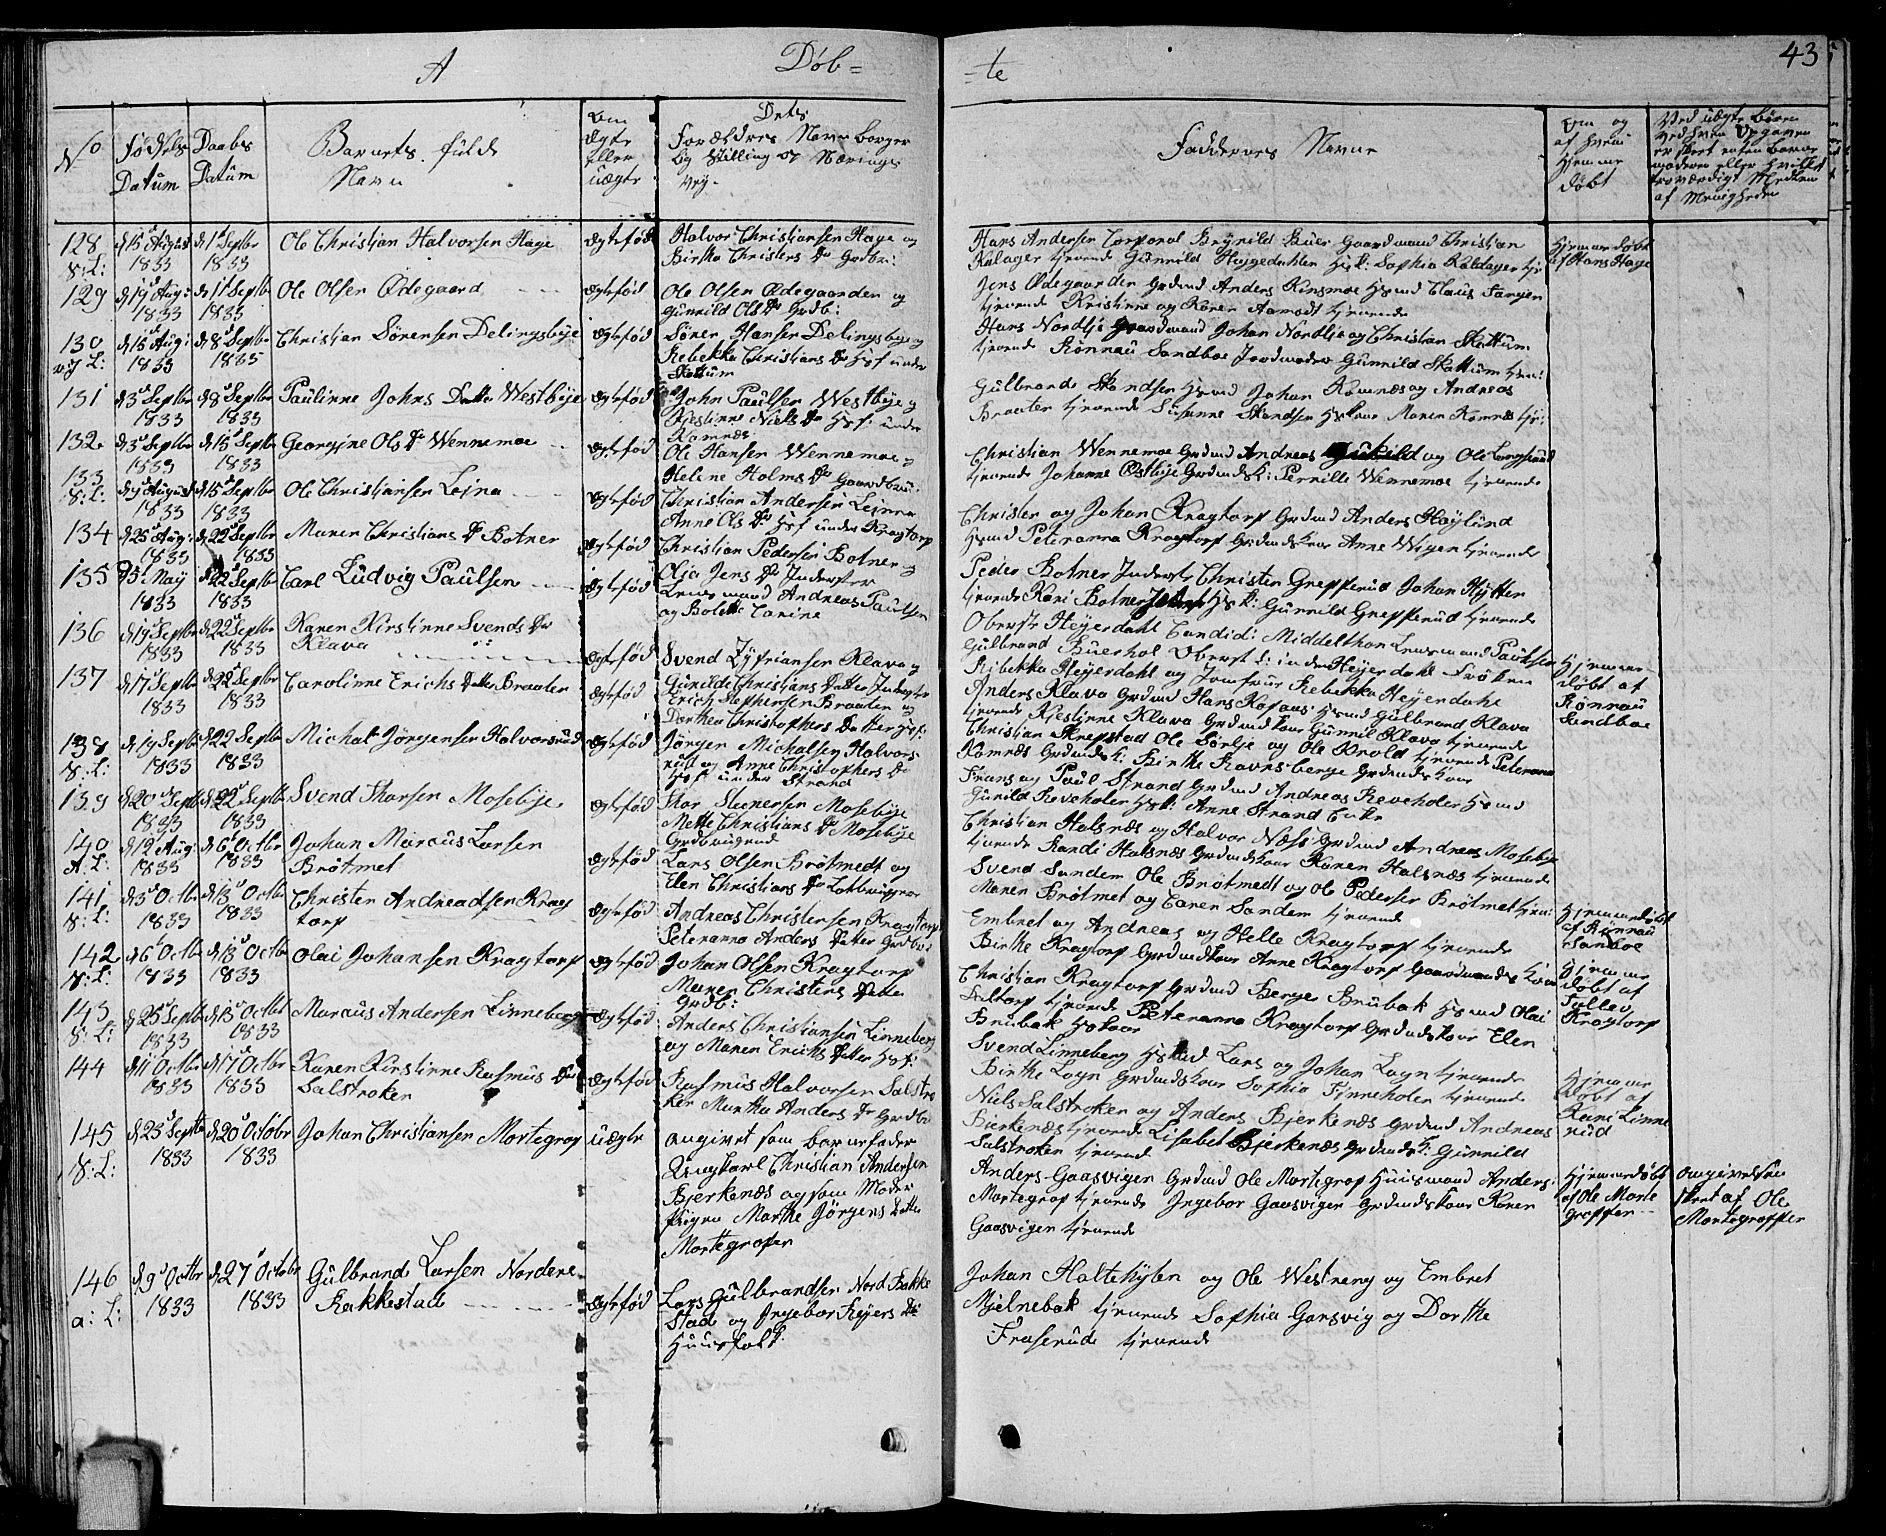 A Døb=
=te 43
No
Fødsels Datum
Daabs Datum
Barnets fulde Navn
Om Ægte Eller uægte
Dets Forældres Navne borger lig Stilling og Nærings Vej.
Faddernes Navne
Om og af hvem hjemme døbt
128 d 15 August 1833 d 1 Septbr 1833 Ole Christian Halvorsen Hage ægtefød
8:L:
Halvor Christiansen Hage og
Birthe Christens Dr Grdbr:
Hans Andersen Corporal Brynild Buer Gaardmand Christian
Kalager tjenende Gunnild Huggedahlen Hsk: Sophia Kaldager tj:
hjemme døbt
af Hans Hage
129 d 19 Aug: 1833 d 1 Septbr 1833 Ole Olsen Ødegaard ægtefød
Ole Olsen Ødegaarden og
Gunnild Ols Dr Grdb:
Jens Ødegaarden Grdmd Anders Rinsmoe Hsmd Claus Tangen
tjenende Kristinne og Karen Aamodt tjenende
130 d 15 Aug: 1833 d 8 Septbr 1833 Christian Sörensen Delingsbye ægtefød
Sören Hansen Delingsbye og
Rebekka Christians Dr Hsf under
Skattum
Hans Nordlie Gaardmand Johan Nordlie og Christian Skattum
tjenende Rönnau Sandboe Jordmoder Gunnild Skattum tjen:
131 d 3 Septbr 1833 d 8 Septbr 1833 Paulinne Johns Datter Westbye ægtefød
John Paulsen Westbye og
Kistinne Niels Dr Hsf: under
Komnæs
Gulbrand Skandsen Hsmd Johan Komnæs og Andreas
Braaten tjenende Susanne Skandsen Hskone Maren Komnæs tj:
132 d 3 Septbr 1833 d 15 Septbr 1833 Georgine Ols Dr Wennemoe ægtefød
Ole Hansen Wennemoe og
Helene Holms Dr Gaardbru:
Christian Wennemoe Grdmd Andreas og Ole
tjenende Johanne Østbye Grdmdsk: Pernille Wennemoe tjenende
133 8:L: d 9 August 1833 d 15 Septbr 1833 Ole Christiansen Lejna ægtefød
Christian Andersen Lejna
Anne Ols Dr Hsf under Kragtorp
Christen og Johan Kragtorp Grdmd Anders Høylund
Hsmd Peteranna Kragtorp Grdmdskone Anne Wigen tjenende
134 d 25 Aug: 1833 d 22 Septbr 1833 Maren Christians Dr Botner ægtefød
Christian Pedersen Botner og
Olia Jens Dr Inderster
Peder Botner Inderst Christen Grefferud Johan Hytten
tjenende Kari Botner Hsk: Gunnild Grefferud tjenende
135 5 May 1833 d 22 Septbr 1833 Carl Ludvig Paulsen ægtefød
Lensmand Andreas Paulsen
og Bolette Carine
Oberst Heyerdahl Candid: Middelthon Lensmand Paulsen
Gulbrand Buerhol Oberstinden Heyerdahl Frøken
Ribekka Heyerdahl og Jomfrue Rebekka Heyerdahl
hjemme
døbt af
Rønnau
Sandboe
136 d 19 Septbr 1833 d 22 Septbr 1833 Karen Kirstinne Svends Dr
Klava ægtefød
Svend Zyprianssen Klava og
Gunild Christians Datter Inderster
Anders Klava Grdmd Hans Hsmd Gulbrand Klava
tjenende Kjestinne Klava Grdmdskone Gunnil Klava tjenende
137 d 17 Septbr 1833 d 22 Septbr 1833 Carolinne Erichs Datter Braaten ægtefød
Erich Stephensen Braaten og
Dorthea Christophers Datter Hsf:
Christian Skrepstad Ole Sørlje og Ole Krold tjenende Peteranna
Komnæs Grdmdsk: Birthe Ravnsberge Grdmdskone
138 8:L: d 19 Septbr 1833 d 22 Septbr 1833 Michal Jørgensen Halvorsrud ægtefød
Jørgen Michalsen Halvors
rud og Anne Christophers Dr
Hsf under Strand
Frans og Paul Strand Grdmd Andreas Reveholen Hsmd
Gunild Reveholen Hsk: Anne Strand Enke
139 d 20 Septb 1833 d 22 Septbr 1833 Svend Thorsen Mosebye ægtefød
Thor Steenersen Mosebye
Mette Christians Dr Mosebye
Grdbrugend
Christian Halsnæs og Halvor Næss Grdmd Andreas Mosebye
tjenende Randi Halsnæs Grdmdskone Karen Halsnæs tjenende
140 A:L: d 12 Aug: 1833 d 6 Octbr 1833 Johan Marcus Larsen
Brötmet ægtefød
Lars Olsen Brötmedt og
Elen Christians Dr
Svend Sanden Ole Brötmedt og Ole Pedersen Brötmet tjen:
Maren Brötmet og Caren Sanden tjenende
141 8:L: d 3 Octbr 1833 d 13 Octbr 1833 Christen Andreadsen Krag
torp ægtefød
Andreas Christensen Kragtorp
Peteranna Anders Datter Grdbr:
Embret og Andreas og Helle Kragtorp tjenende
Birthe Kragtorp Grdmdskone Anne Kragtorp Gaardmands Kone
hjemmedøbt
af Rønnau
Sandboe
142 8:L: d 6 Octbr 1833 d 13 Octbr 1833 Olai Johansen Kragtorp ægtefød
Johan Olsen Kragtorp
Maren Christens Datter
Grdb:
Christian Kragtorp Grdmd Børge Brubak Hsmd Olai
tjenende Peteranna Kragtorp Grdmdskone Elen
Brubak Hskone
hjemme
døbt af
Tollev
Kragtorp
143 8:L: d 25 Septbr 1833 d 13 Octbr 1833 Marcus Andersen Linneberg ægtefød
Anders Christiansen Linneberg
og Maren Erichs Datter Hsf:
Svend Linneberg Hsmd Lars og Johan Logn tjenende
Birthe Logn Grdmdskone Sophia Finneholen tjenende
144 d 11 Octbr 1833 d 17 Octbr 1833 Karen Kirstinne Rasmus Dr
Salstroken ægtefød
Rasmus Halvorsen Salstro
ken Martha Anders Dr Grdbr
Niels Salstroken og Anders Bjerkenæs Grdmd Andreas
Bjerkenæs tjenende Lisabet Bjerkenæs Grdmdsk: Gunnild
Salstroken tjenende
hjemme
døbt af
Kari Linne
rud
145 8:L: d 23 Septbr 1833 d 20 Octobr 1833 Johan Christiansen Mortegrof uægte
angivet som barnefader
Ungkarl Christian Andersen
Bjerkenæs og som Moder
Pigen Marthe Jørgens Datter
Mortegrofen
Anders Gaasvigen Grdmd Ole Mortegrof Huusmand Anders
Mortegrof tjenende Ingebor Gaasvigen Grdmdskone Karen
Gaasvigen tjenende
hjemmedøbt
af Ole Morte
groffen
angivelsen
skeet af Ole
Mortegroffen
146 a:L: d 9 Octbr 1833 d 27 Octobr 1833 Gulbrand Larsen Nordere
Rakkestad ægtefød
Lars Gulbrandsen Nord Rakke
stad og Ingebor Rejers Dr
Huusfolk:
Johan Holtehylen og Ole Westreng og Embret
Mjelnebak tjenende Sophia Gaasvig og Dorthe
Fraserude tjenende